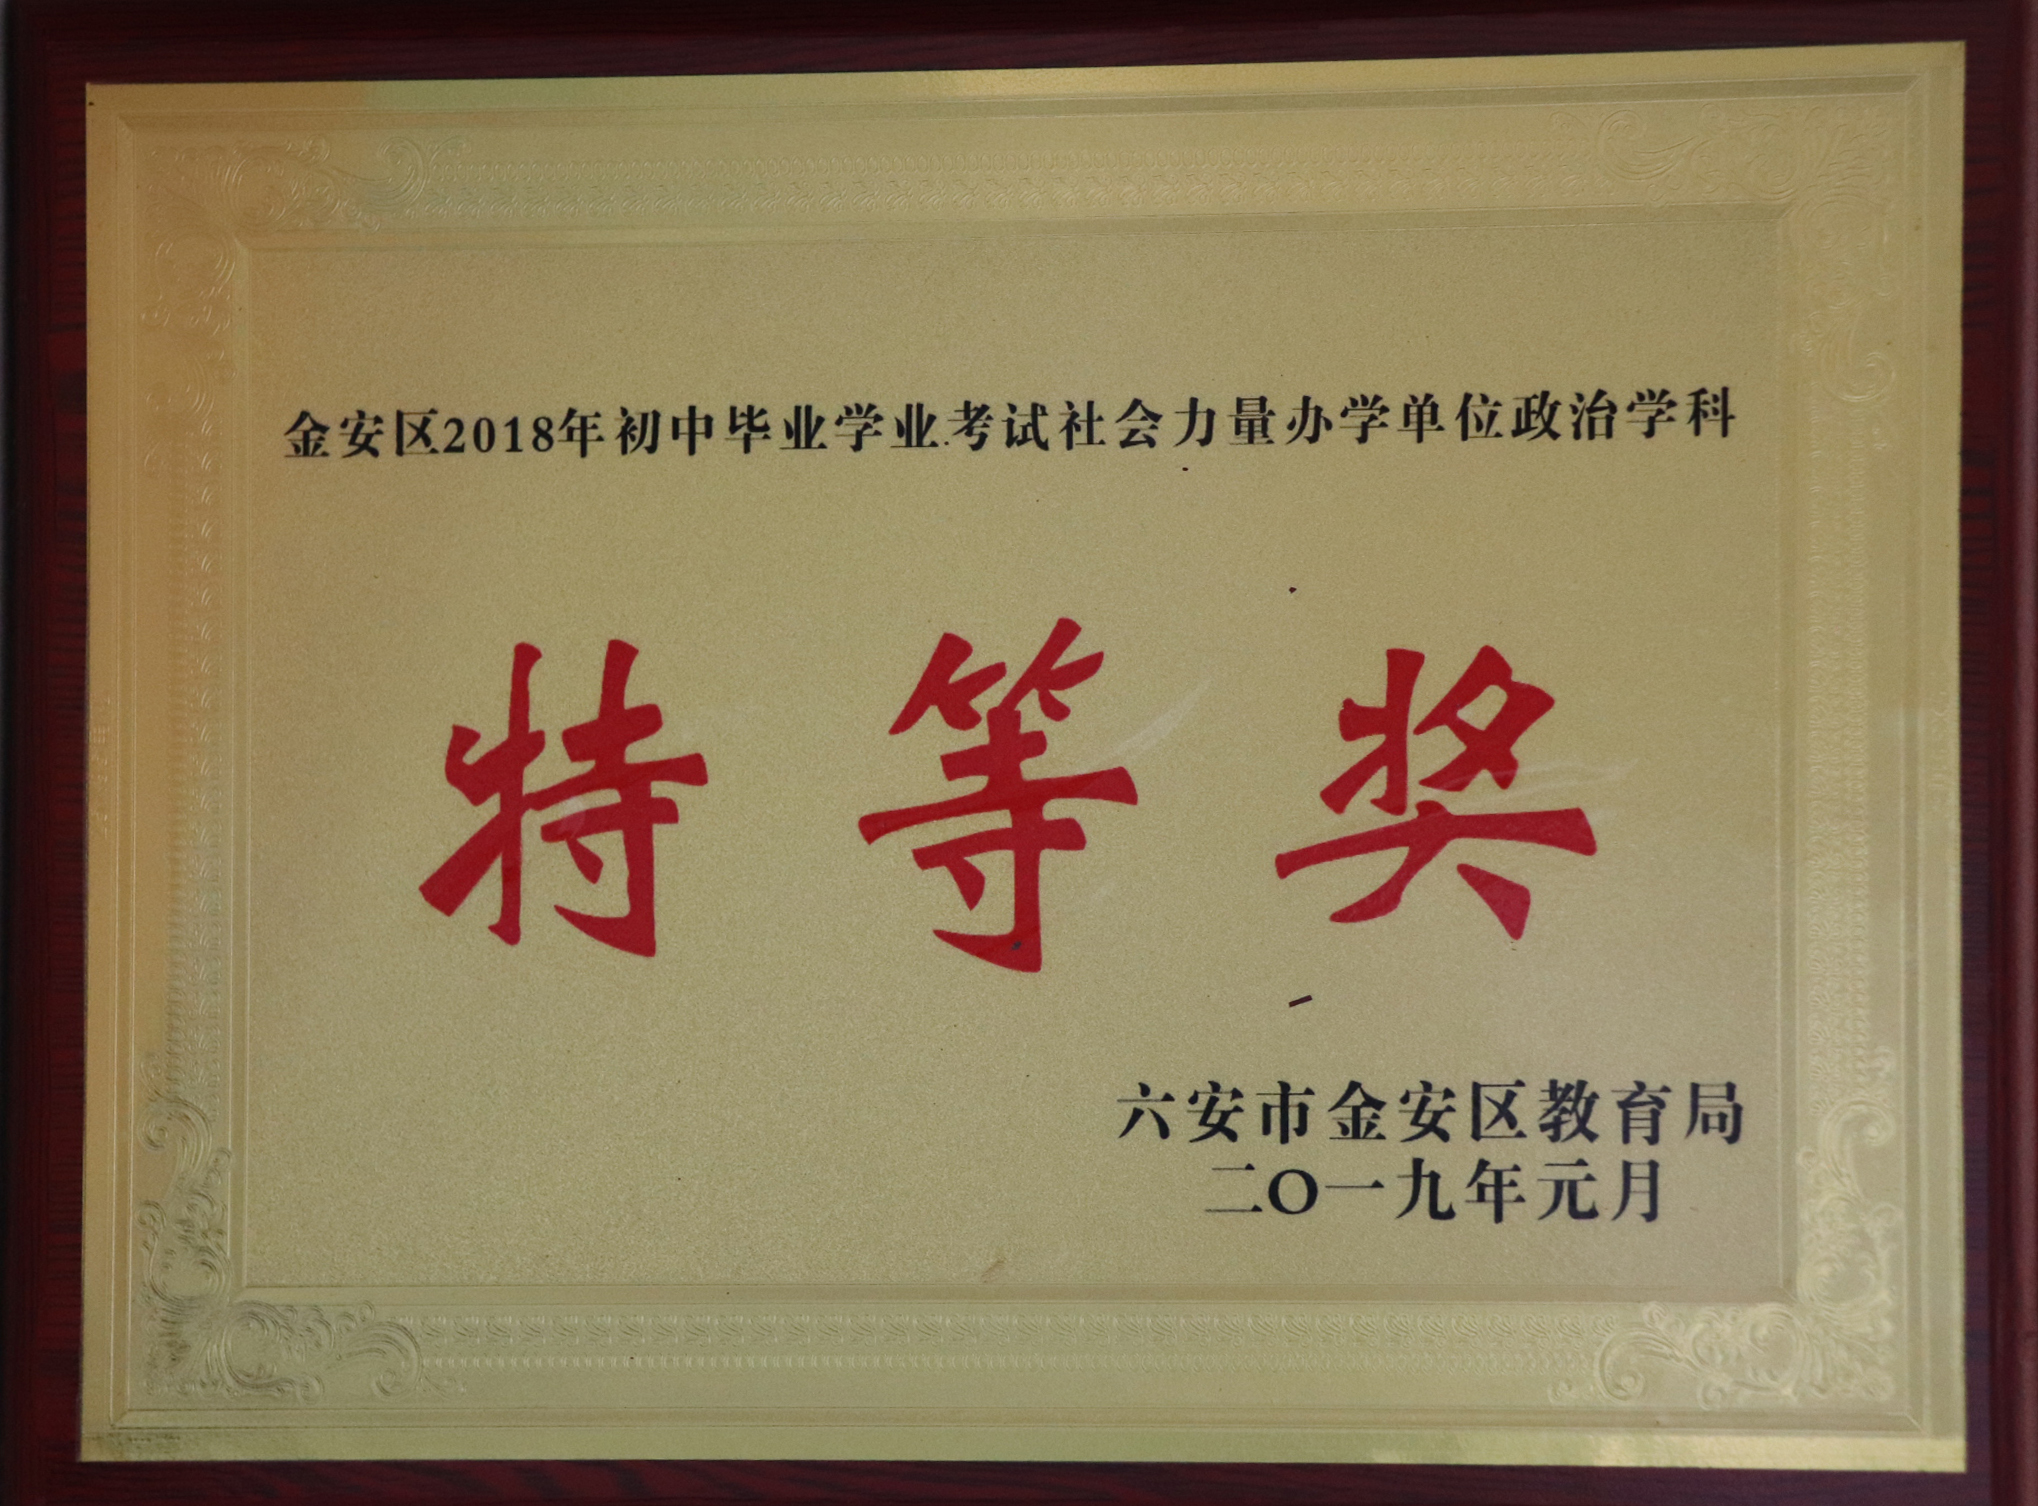 金安区2018年初中毕业学业考试社会力量办学单位政治学科
特等奖
六安市金安区教育局
二〇一九年元月